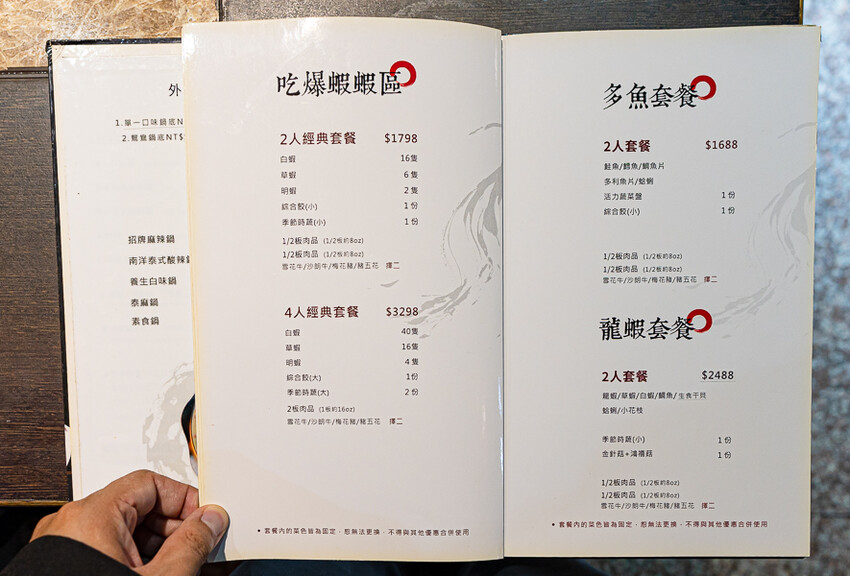 外
1.單一口味鍋底N
2.鴛鴦鍋底NT$
招牌麻辣鍋
南洋泰式酸辣鍋
養生白味鍋
泰麻鍋
素食鍋
吃爆蝦蝦區
2人經典套餐 $1798
白蝦 16隻
草蝦 6隻
明蝦 2隻
綜合餃(小) 1份
季節時蔬(小) 1份
1/2板肉品 (1/2板約8oz)
1/2板肉品 (1/2板約8oz)
雪花牛/沙朗牛/梅花豬/豬五花 擇二
4人經典套餐 $3298
白蝦 40隻
草蝦 16隻
明蝦 4隻
綜合餃(大) 1份
季節時蔬(大) 2份
2板肉品 (1板約16oz)
雪花牛/沙朗牛/梅花豬/豬五花 擇二
● 套餐內的菜色皆為固定，恕無法更換，不得與其他優惠合併使用
多魚套餐
2人套餐 $1688
鮭魚/鱈魚/鯛魚片
多利魚片/蛤蜊
活力蔬菜盤 1份
綜合餃(小) 1份
1/2板肉品 (1/2板約8oz)
1/2板肉品 (1/2板約8oz)
雪花牛/沙朗牛/梅花豬/豬五花 擇二
龍蝦套餐
2人套餐 $2488
龍蝦/草蝦/白蝦/鯛魚/生食干貝
蛤蜊/小花枝
季節時蔬(小) 1份
金針菇+鴻禧菇 1份
1/2板肉品 (1/2板約8oz)
1/2板肉品 (1/2板約8oz)
雪花牛/沙朗牛/梅花豬/豬五花 擇二
● 套餐內的菜色皆為固定，恕無法更換，不得與其他優惠合併使用